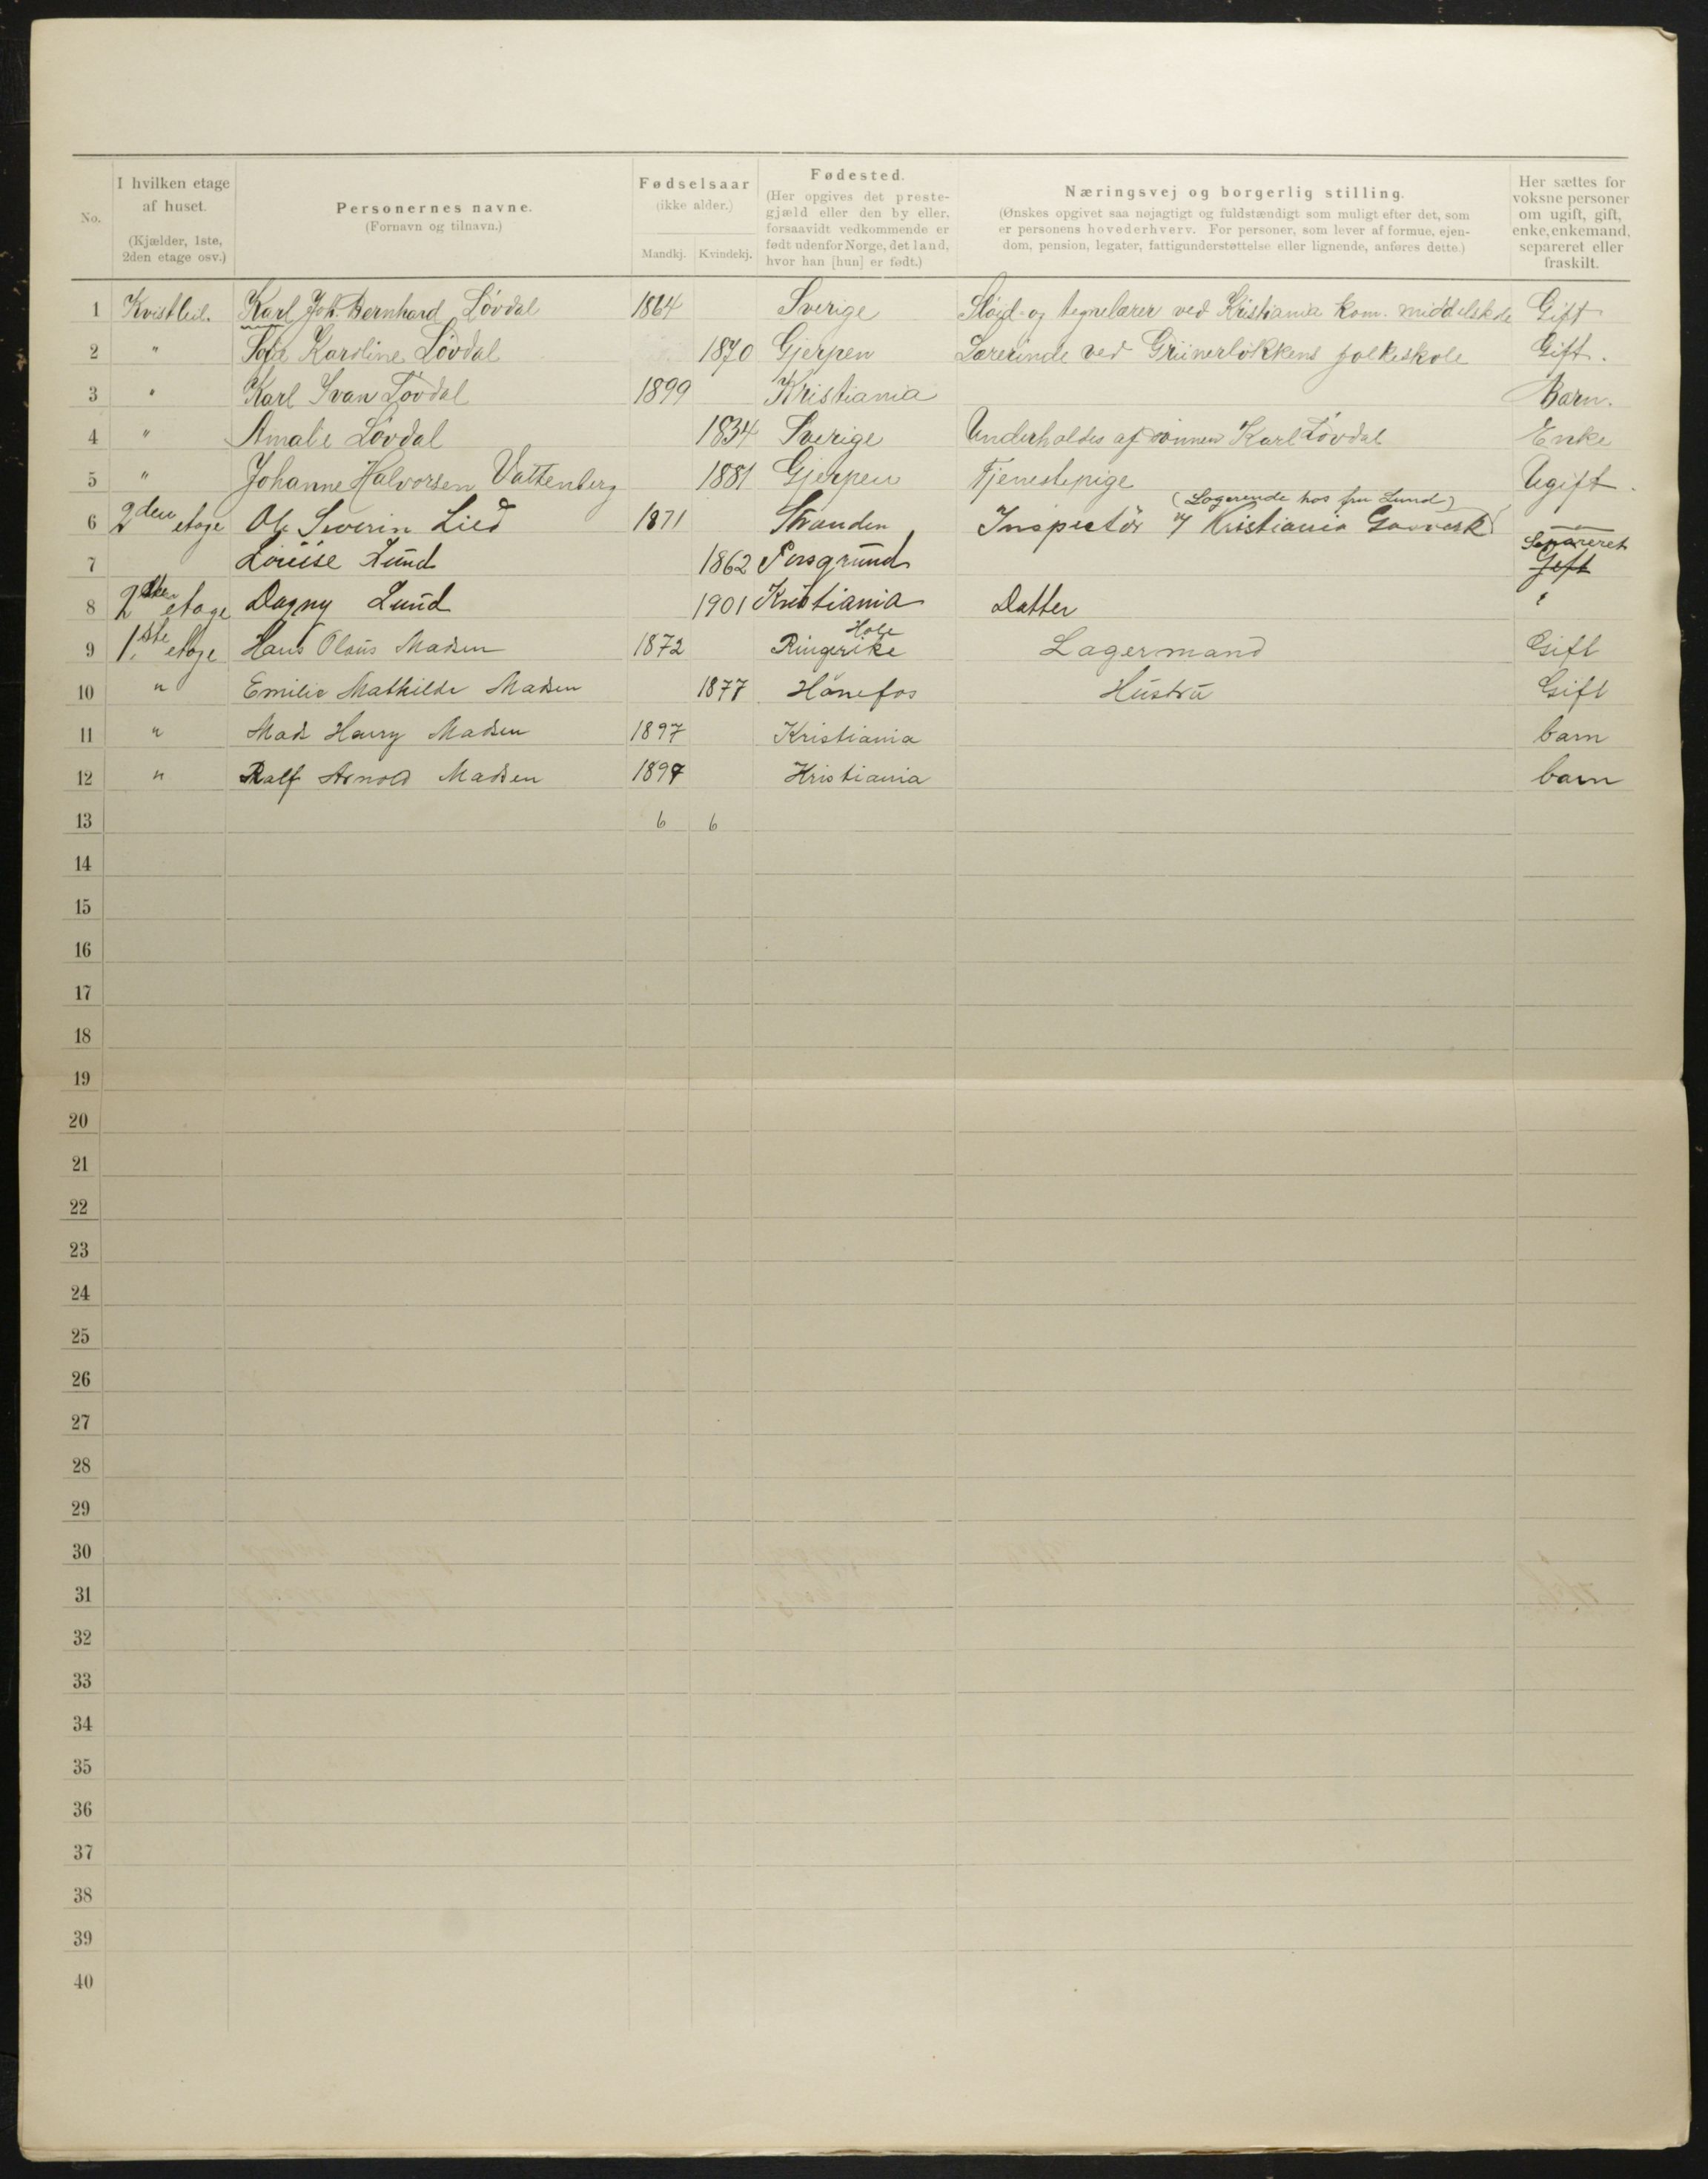 No.
I hvilken etage af huset. (Kjælder, 1ste, 2den etage osv.)
Personernes navne. (Fornavn og tilnavn.)
Fødselsaar (ikke alder.)
Mandkj. Kvindekj.
Fødested. (Her opgives det prestegjæld eller den by eller, forsaavidt vedkommende er født udenfor Norge, det land, hvor han [hun] er født.)
Næringsvej og borgerlig stilling.
(Ønskes opgivet saa nøjagtigt og fuldstændigt som muligt efter det, som er personens hovederhverv. For personer, som lever af formue, ejendom, pension, legater, fattigunderstøttelse eller lignende, anføres dette.)
Her sættes for voksne personer om ugift, gift, enke, enkemand, separeret eller fraskilt.
1 Kvistleil. Karl Joh. Bernhard Lövdal 1864 Sverige Slöjd- og tegnelærer ved Kristiania kom. middelskole Gift
2 " Sofie Karoline Lövdal 1870 Gjerpen Lærerinde ved Grünerlökkens folkeskole Gift.
3 " Karl Ivan Lövdal 1899 Kristiania Barn.
4 " Amalie Lövdal 1834 Sverige Underholdes af sönnen Karl Lövdal Enke
5 " Johanne Halvorsen Vattenberg 1881 Gjerpen Tjenestepige Ugift.
(Logerende hos fru Lund)
6 2den etage Ole Severin Lied 1871 Stranden Inspectör v/ Kristiania Gasverk
Separeret
7 Louise Lund 1862 Porsgrund Gift
8 2den etage Dagny Lund 1901 Kristiania Datter "
Hole
9 1.ste etage Hans Olaus Madsen 1872 Ringerike Lagermand Gift
10 " Emilie Mathilde Madsen 1877 Hönefos Hustru Gift
11 " Mads Harry Madsen 1897 Kristiania barn
12 " Ralf Arnold Madsen 1897 Kristiania barn
13 6 6
14
15
16
17
18
19
20
21
22
23
24
25
26
27
28
29
30
31
32
33
34
35
36
37
38
39
40